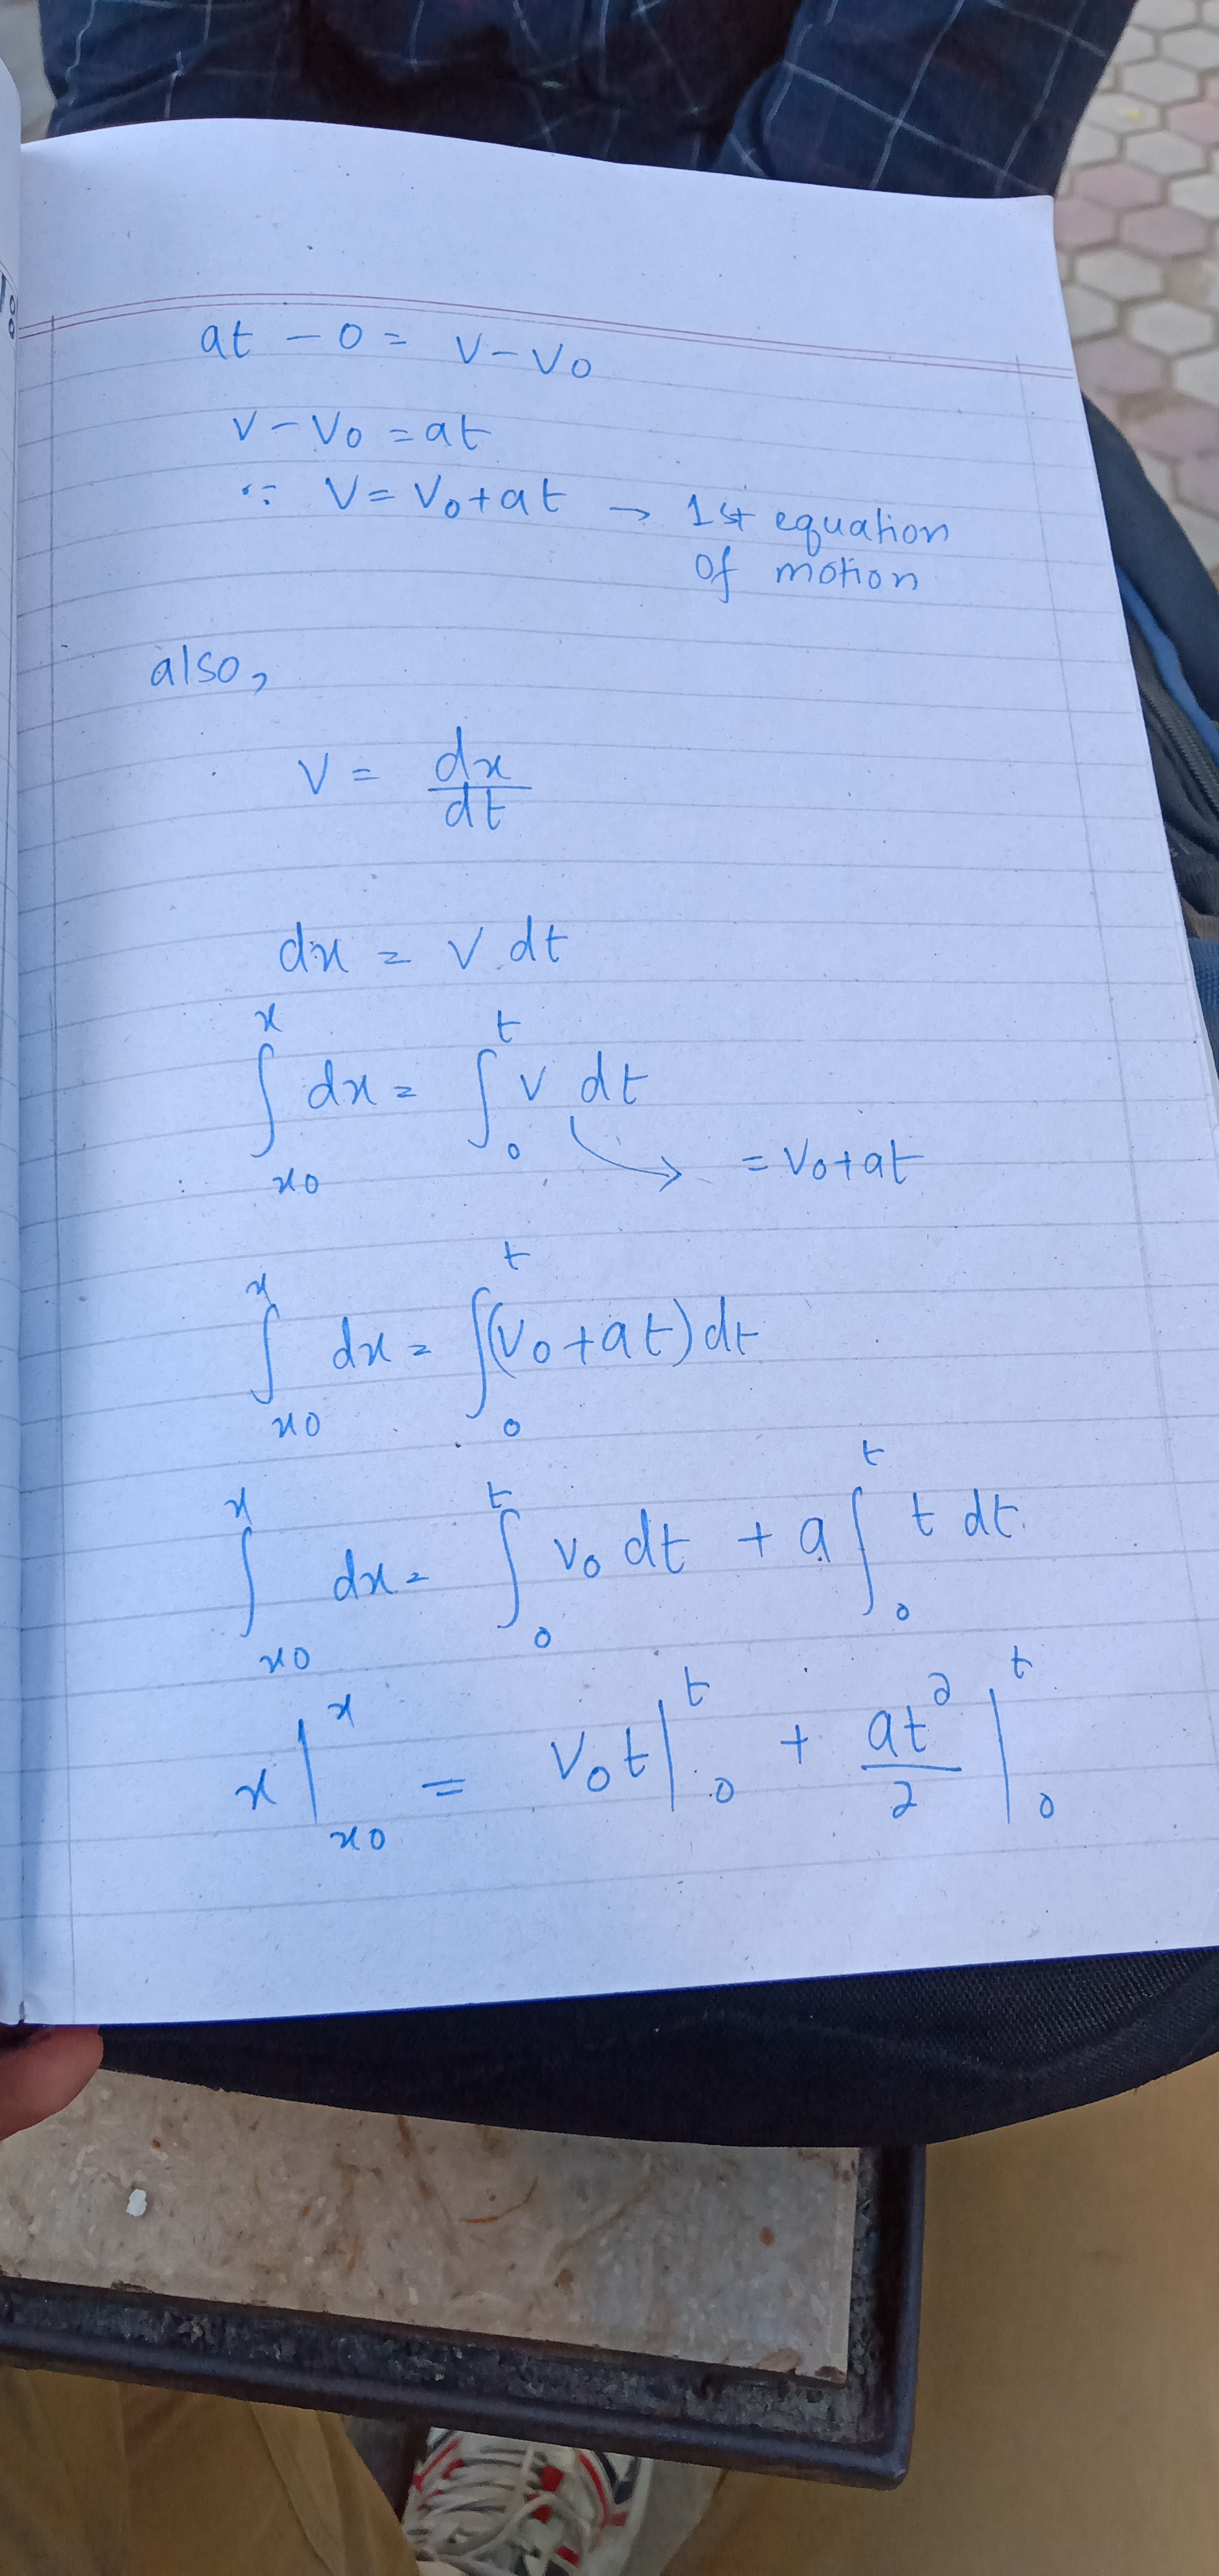 at - 0 = v - v0
v - v0 = at
∵ v = v0 + at → 1st equation
of motion
also,
v = dx/dt
dx = v dt
∫_{x0}^{x} dx = ∫_{0}^{t} v dt
= v0 + at
∫_{x0}^{x} dx = ∫_{0}^{t} (v0 + at) dt
∫_{x0}^{x} dx = ∫_{0}^{t} v0 dt + a ∫_{0}^{t} t dt
x |_{x0}^{x} = v0 t |_{0}^{t} + at²/2 |_{0}^{t}